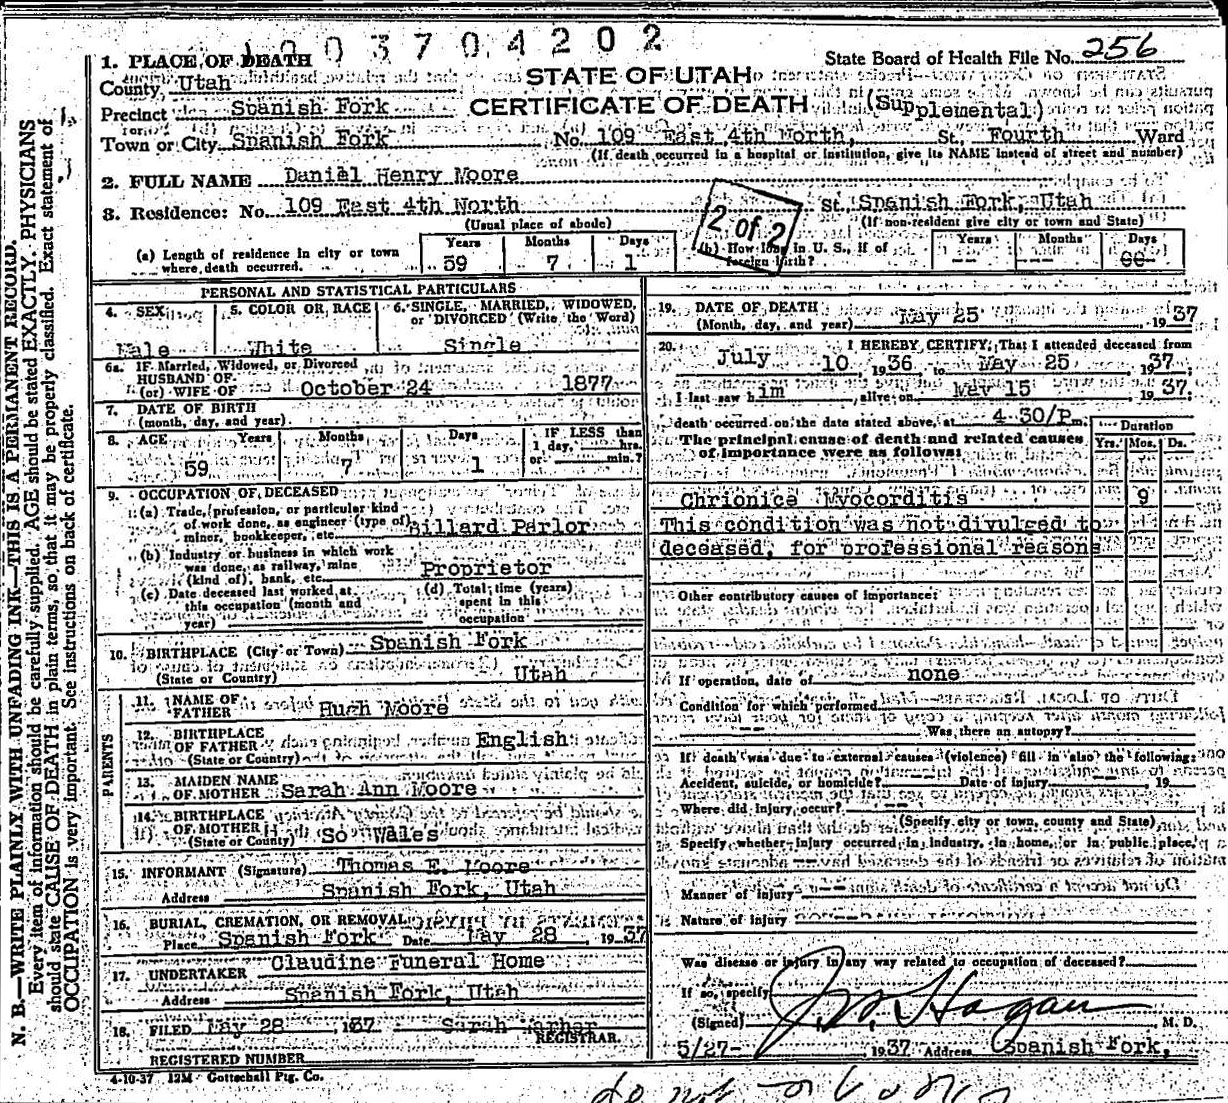 1003704202
State Board of Health File No. 256
1. PLACE OF DEATH
County, Utah
STATE OF UTAH
Precinct Spanish Fork
CERTIFICATE OF DEATH (Supplemental)
Town or City Spanish Fork No. 109 East 4th North, St. Fourth Ward
(If death occurred in a hospital or institution, give its NAME instead of street and number)
2. FULL NAME Daniel Henry Moore
3. Residence: No. 109 East 4th North St. Spanish Fork, Utah
(Usual place of abode) (If non-resident give city or town and State)
2 of 2
(a) Length of residence in city or town where death occurred. Years 59 Months 7 Days 1
(b) How long in U. S., if of foreign birth? Years -- Months --- Days
PERSONAL AND STATISTICAL PARTICULARS
4. SEX Male
5. COLOR OR RACE White
6. SINGLE, MARRIED, WIDOWED, or DIVORCED (Write the Word) Single
6a. IF Married, Widowed, or Divorced
HUSBAND OF
(or) WIFE OF October 24 1877
7. DATE OF BIRTH
(month, day, and year)
8. AGE Years 59 Months 7 Days 1 IF LESS than 1 day, hrs. or min.?
9. OCCUPATION OF DECEASED
(a) Trade, profession, or particular kind
of work done, as engineer (type of)
miner, bookkeeper, etc. Billard Parlor
(b) Industry or business in which work
was done, as railway, mine
(kind of), bank, etc. Proprietor
(c) Date deceased last worked at
this occupation (month and
year)
(d) Total time (years)
spent in this
occupation
10. BIRTHPLACE (City or Town) Spanish Fork
(State or Country) Utah
PARENTS
11. NAME OF
FATHER Hugh Moore
12. BIRTHPLACE
OF FATHER English
(State or Country)
13. MAIDEN NAME
OF MOTHER Sarah Ann Moore
14. BIRTHPLACE
OF MOTHER
(State or Country) So. Wales
15. INFORMANT (Signature) Thomas E. Moore
Address Spanish Fork, Utah
16. BURIAL, CREMATION, OR REMOVAL
Place Spanish Fork Date May 28 1937
17. UNDERTAKER Claudine Funeral Home
Address Spanish Fork, Utah
18. FILED May 28, 1937 Sarah
REGISTRAR.
REGISTERED NUMBER
4-10-37 12M Gottschall Ptg. Co.
19. DATE OF DEATH
(Month, day, and year) May 25 1937
20. I HEREBY CERTIFY, That I attended deceased from
July 10, 1936 to May 25 1937
I last saw him alive on May 15 1937
death occurred on the date stated above, at 4 30/P m.
The principal cause of death and related causes
of importance were as follows:
Duration
Yrs. Mos. Ds.
Chrionice Myocorditis 9
This condition was not divulged to
deceased, for professional reasons
Other contributory causes of importance:
If operation, date of none
Condition for which performed
Was there an autopsy?
If death was due to external causes (violence) fill in also the following:
Accident, suicide, or homicide? -- Date of injury -- 19
Where did injury occur? --
(Specify city or town, county and State)
Specify whether injury occurred in industry, in home, or in public place,
Manner of injury
Nature of injury
Was disease or injury in any way related to occupation of deceased?
If so, specify
(Signed) J. Hagan M. D.
5/27- 1937 Address Spanish Fork,
do not
N. B.—WRITE PLAINLY WITH UNFADING INK—THIS IS A PERMANENT RECORD.
Every item of information should be carefully supplied. AGE should be stated EXACTLY. PHYSICIANS
should state CAUSE OF DEATH in plain terms, so that it may be properly classified. Exact statement of
OCCUPATION is very important. See instructions on back of certificate.